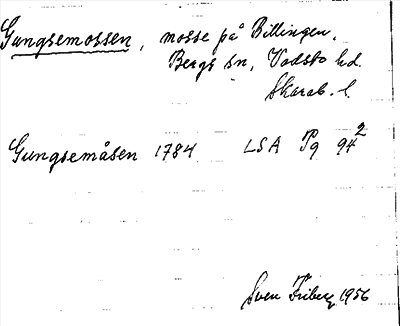 Gungsemossen, mosse på Billingen,
Bergs sn, Vadsbo hd.
Skarab. l.
Gungsemåsen 1784 LSA P9 94²
Sven Friberg 1956